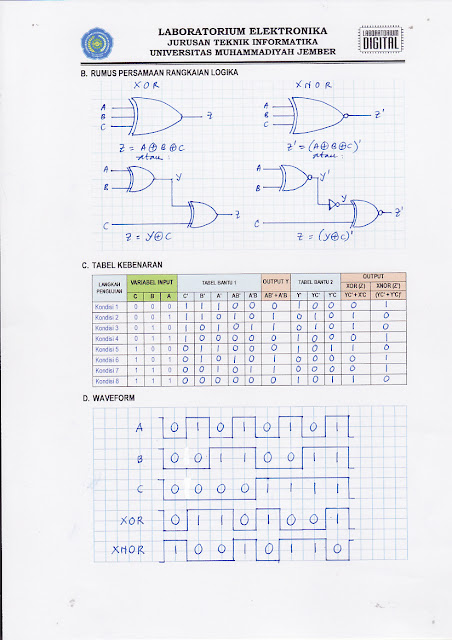 LABORATORIUM ELEKTRONIKA
JURUSAN TEKNIK INFORMATIKA
UNIVERSITAS MUHAMMADIYAH JEMBER
LABORATORIUM
DIGITAL
B. RUMUS PERSAMAAN RANGKAIAN LOGIKA
XOR XNOR
A B C Z
A B C Z'
Z = A ⊕ B ⊕ C Z' = (A ⊕ B ⊕ C)'
atau : atau :
A B Y C Z
A B Y' Y C Z'
Z = Y ⊕ C Z = (Y ⊕ C)'
C. TABEL KEBENARAN
LANGKAH PENGUJIAN VARIABEL INPUT TABEL BANTU 1 OUTPUT Y TABEL BANTU 2 OUTPUT
XOR (Z) XNOR (Z')
C B A C' B' A' AB' A'B AB' + A'B Y' YC' Y'C YC' + Y'C (YC' + Y'C)'
Kondisi 1 0 0 0 1 1 1 0 0 0 1 0 0 0 1
Kondisi 2 0 0 1 1 1 0 1 0 1 0 1 0 1 0
Kondisi 3 0 1 0 1 0 1 0 1 1 0 1 0 1 0
Kondisi 4 0 1 1 1 0 0 0 0 0 1 0 0 0 1
Kondisi 5 1 0 0 0 1 1 0 0 0 1 0 1 1 0
Kondisi 6 1 0 1 0 1 0 1 0 1 0 0 0 0 1
Kondisi 7 1 1 0 0 0 1 0 1 1 0 0 0 0 1
Kondisi 8 1 1 1 0 0 0 0 0 0 1 0 1 1 0
D. WAVEFORM
A 0 1 0 1 0 1 0 1
B 0 0 1 1 0 0 1 1
C 0 0 0 0 1 1 1 1
XOR 0 1 1 0 1 0 0 1
XNOR 1 0 0 1 0 1 1 0